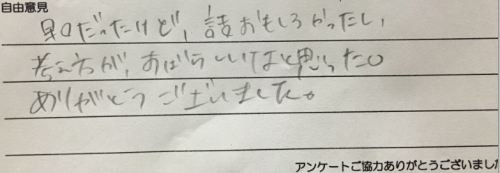 自由意見
早口だったけど、話おもしろかったし、
考え方が、すばらしいなと思った。
ありがとうございました。
アンケートご協力ありがとうございまし